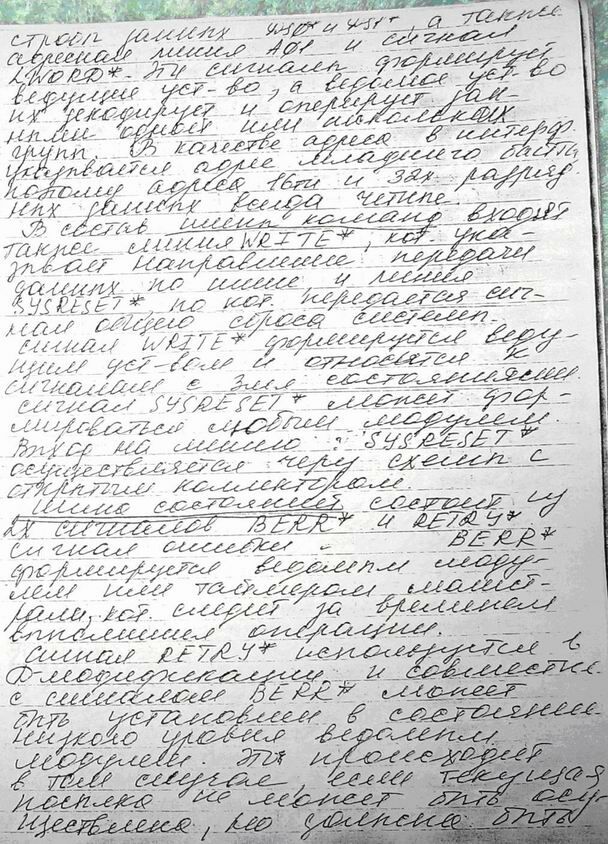 строб данных DS0* и DS1*, а также
адресная линия A01 и сигнал
LWORD*. Эти сигналы формирует
ведущее уст-во, а ведомое уст-во
их декодирует и оперирует дан-
ными одной или нескольких
групп. В качестве адреса в интерф.
указывается адрес младшего байта
потому адреса 16ти и 32х разряд.
ных данных всегда четные.
В состав шины команд входят
также линия WRITE*, кот. ука-
зывает направление передачи
данных по шине и линия
SYSRESET*, по кот. передается сиг-
нал общего сброса системы.
сигнал WRITE* формируется веду-
щим уст-вом и относится к
сигналам с 3мя состояниями.
сигнал SYSRESET* может фор-
мироваться любым модулем.
Выход на линию SYSRESET*
осуществляется через схемы с
открытым коллектором.
Шина состояния состоит из
2х сигналов BERR* и RETRY*
сигнал ошибки - BERR*
формируется ведомым моду-
лем или таймером магист-
рали, кот. следит за временем
выполнения операции.
Сигнал RETRY* используется в
D-модификации и совместно
с сигналом BERR* может
быть установлен в состояние
низкого уровня ведомым
модулем. Это происходит
в том случае, если текущая
посылка не может быть осу-
ществлена, но должна быть